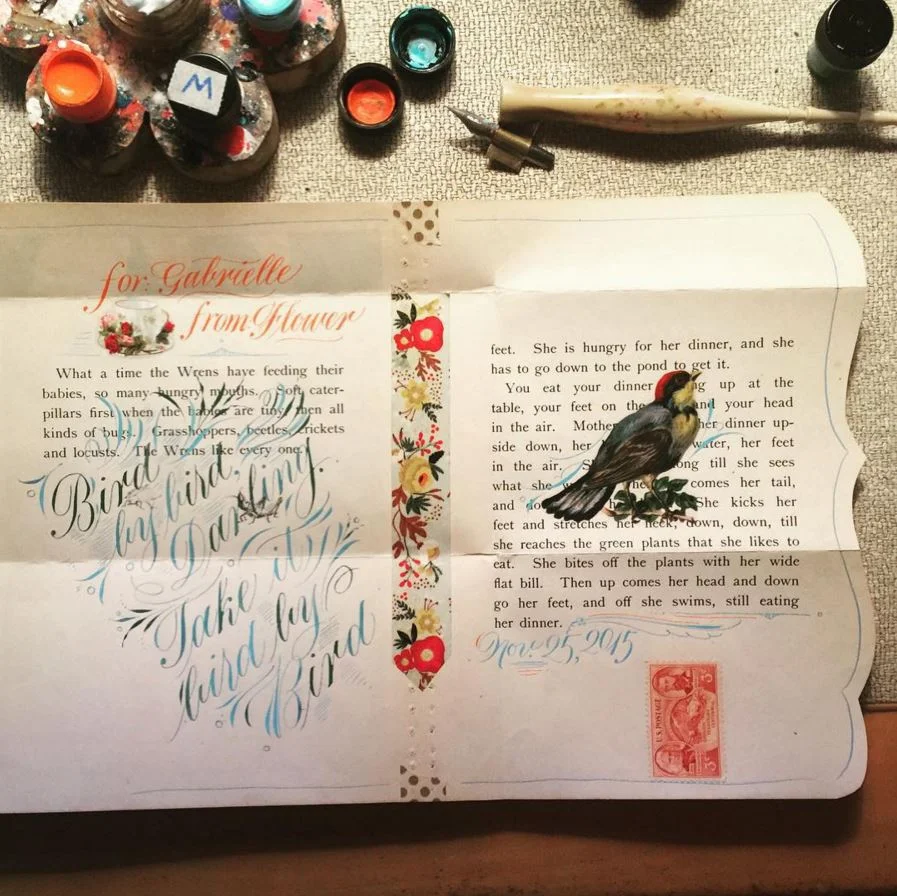 M
for Gabrielle
from Flower
What a time the Wrens have feeding their
babies, so many hungry mouths. Soft cater-
pillars first when the babies are tiny, then all
kinds of bugs. Grasshoppers, beetles, crickets
and locusts. The Wrens like every one.
Bird
by bird,
Darling.
Take it
bird by
Bird
feet. She is hungry for her dinner, and she
has to go down to the pond to get it.
You eat your dinner up at the
table, your feet on the and your head
in the air. Mother her dinner up-
side down, her water, her feet
in the air. long till she sees
what she comes her tail,
and She kicks her
feet and stretches her neck, down, down, till
she reaches the green plants that she likes to
eat. She bites off the plants with her wide
flat bill. Then up comes her head and down
go her feet, and off she swims, still eating
her dinner.
Nov. 25, 2015
U.S. POSTAGE
3¢
3¢